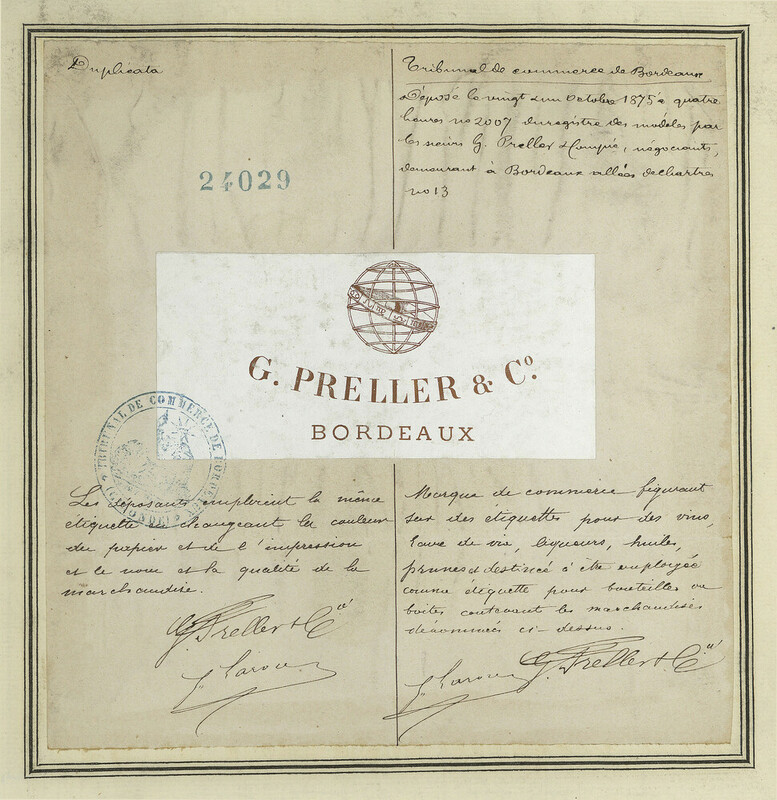 Duplicata
24029
Tribunal de commerce de Bordeaux
Déposé le vingt & un octobre 1875 à quatre
heures no 2007 du registre des modèles par
les sieurs G. Preller & Compie, négociants,
demeurant à Bordeaux allées de chartres
no 13
G. PRELLER & Co.
BORDEAUX
TRIBUNAL DE COMMERCE DE BORDEAUX
(GIRONDE)
Les déposants emploient la même
etiquette en changeant la couleur
du papier et de l'impression
et le nom et la qualité de la
marchandise.
G. Preller & Cie
Marque de commerce figurant
sur des etiquettes pour des vins,
eaux de vie, liqueurs, huiles,
prunes & destinée à être employée
comme étiquette pour bouteilles ou
boites contenant les marchandises
dénommées ci-dessus.
G. Preller & Cie